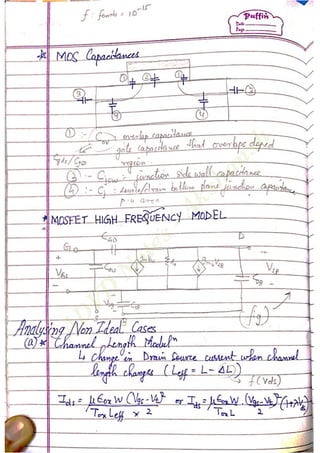 f : femto = 10^-15
Puffin
Date
Page
* MOS Capacitances
① ② ①
③ ③
④ ④
① :- Cov : overlap capacitance
Cgs/CgD gate capacitance that overlaps doped
region
③ :- Cjsw :- junction side wall capacitance
④ :- Cj : source/drain bottom plane junction capacitance
p.u area
* MOSFET HIGH FREQUENCY MODEL
CGD
G D
VGS CGS gmVGS ro gmbVSB VSB
CDB
CSB
fig
Analysing Non Ideal Cases
(a) * Channel Length Modulⁿ
↳ change in Drain source current when channel
length changes (Leff = L - ΔL)
f(Vds)
Ids = μEox W (Vgs-Vt)² or Ids = μEox W . (Vgs-Vt)² (1+λVds)
Tox Leff x 2 Tox L 2